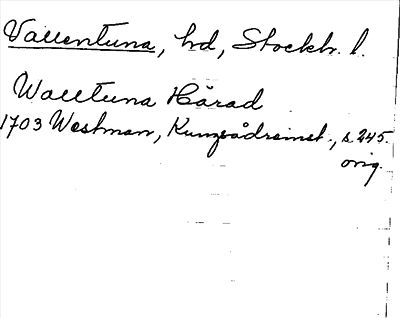 Vallentuna, hd, Stockh. l.
Walltuna Härad
1703 Westman, Kungsådreinst., s. 245.
orig.